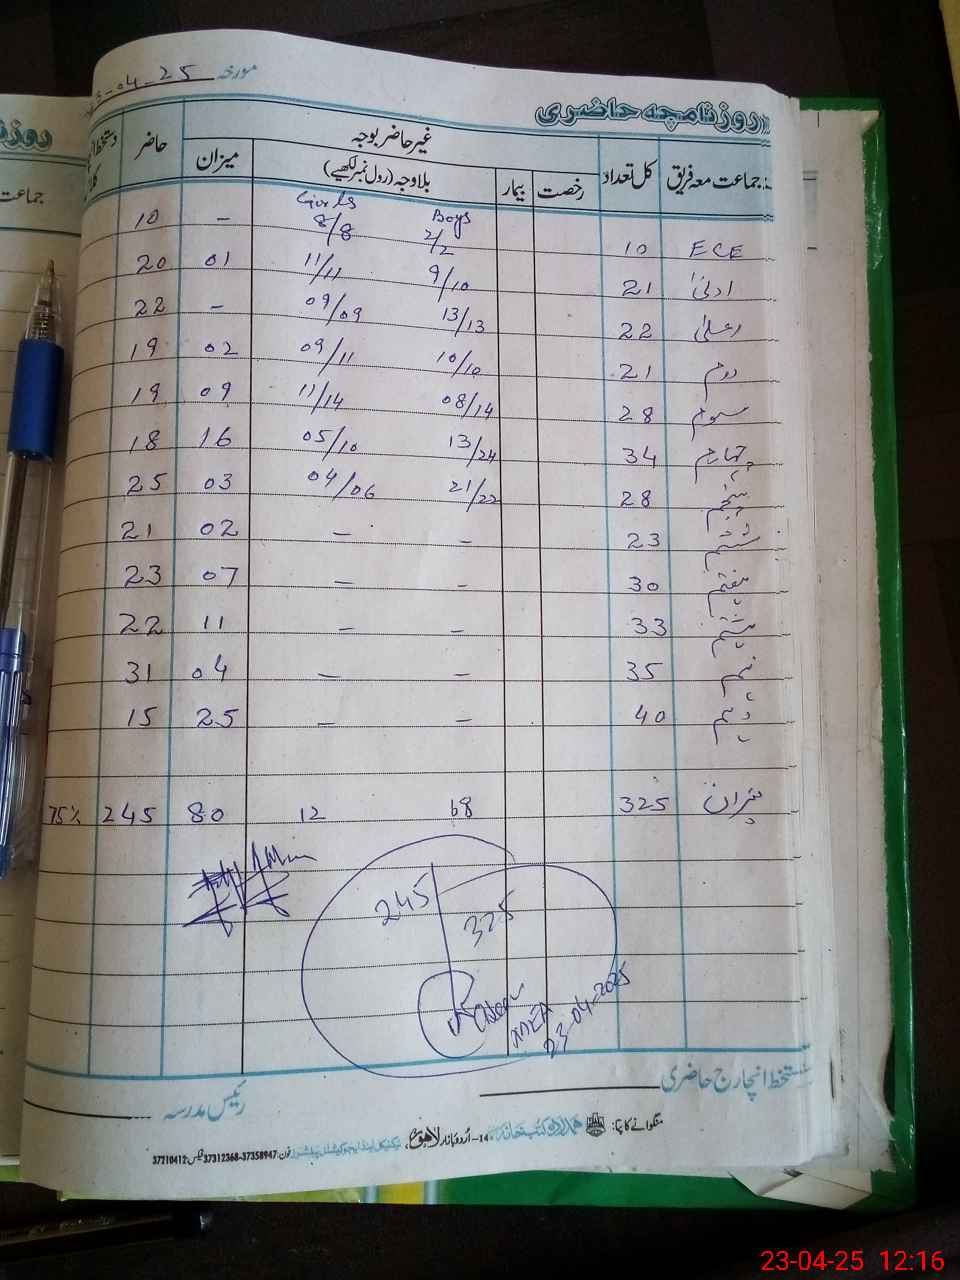 مورخہ 23-04-25
روزنامچہ حاضری
جماعت معہ فریق کل تعداد غیر حاضر بوجہ حاضر
رخصت بیمار بلاوجہ (رول نمبر لکھیے) میزان
Boys Girls
ECE 10 2/2 8/8 - 10
ادنیٰ 21 9/10 11/11 01 20
اعلیٰ 22 13/13 09/09 - 22
دوم 21 10/10 09/11 02 19
سوم 28 08/14 11/14 09 19
چہارم 34 13/24 05/10 16 18
پنجم 28 21/22 04/06 03 25
ششم 23 - - 02 21
ہفتم 30 - - 07 23
ہشتم 33 - - 11 22
نہم 35 - - 04 31
دہم 40 - - 25 15
میزان 325 68 12 80 245 75%
245
325
23-04-2025
دستخط انچارج حاضری
رئیس مدرسہ
منگوانے کا پتا: ہمدرد کتب خانہ 14-اُردو بازار لاہور،
فون: 37358947-37312368 فیکس: 37210412
روزنا
جماعت
23-04-25 12:16